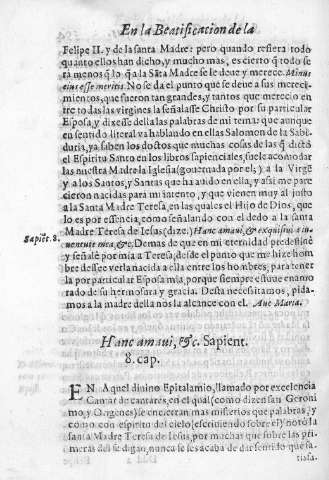 En la Beatificacion de la
Felipe II. y de la santa Madre: pero quando refiera todo
quanto ellos han dicho, y mucho mas, es cierto q̃ todo se
rá menos q̃ lo q̃ a la Sãta Madre se le deue y merece. Minus
eius esse meritis. No se da el punto que se deue a sus mereci-
mientos, que fueron tan grandes, y tantos que merecio en
tre todas las virgines la señalasse Christo por su particular
Esposa, y dixesse della las palabras de mi tema: que aunque
en sentido literal va hablando en ellas Salomon de la Sabi-
duria, ya saben los doctos que muchas cosas de las q̃ dictò
el Espiritu Santo en los libros sapienciales, suele acomodar
las nuestra Madre la Iglesia (gouernada por el,) a la Virgẽ
y a los Santos, y Santas que ha auido en ella, y assi me pare
cieron nacidas para mi intento, y que vienen muy al justo
a la Santa Madre Teresa, en las quales el Hijo de Dios, que
lo es por essencia, como señalando con el dedo a la santa
Madre Teresa de Iesus (dize.) Hanc amaui, & exquisiui a iu-
Sapiẽt. 8.
uentute mea, &c. Demas de que en mi eternidad predestinè
y señalè por mia a Teresa, desde el punto que me hize hom
bre dessee verla nacida a ella entre los hombres, para tener
la por particular Esposa mia, porque siempre estuue enamo
rado de su hermosura y gracia. Della necessitamos, pida-
mos a la madre della nos la alcance con el. Aue Maria.
Hanc amaui, &c. Sapient.
8. cap.
EN Aquel diuino Epitalamio, llamado por excelencia
Cantar de cantares, en el qual (como dizen san Geroni
mo, y Origenes) se encierran mas misterios que palabras, y
como con espiritu del cielo (escriuiendo sobre el) notò la
santa Madre Teresa de Iesus, por muchas que sobre las pri-
meras del se digan, nunca se les acaba de dar sentido que sa
tisfa-